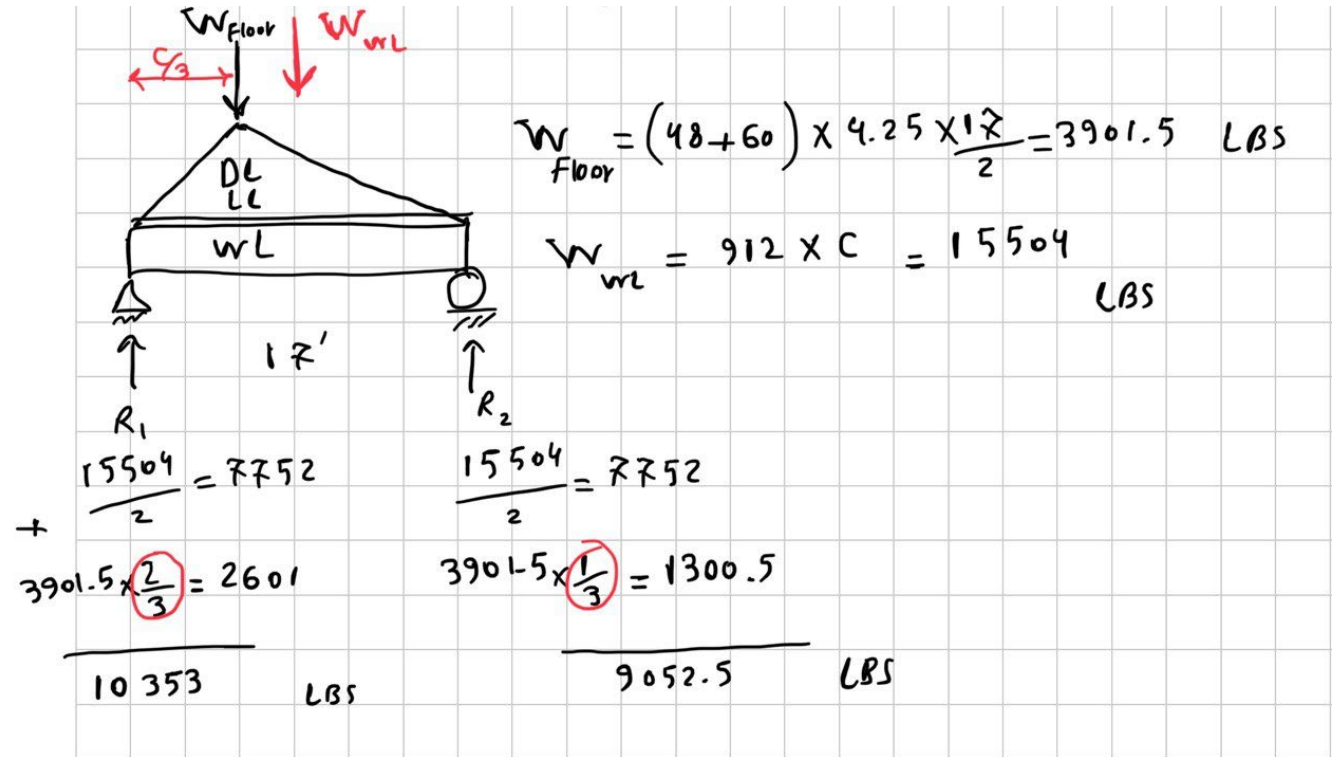 W Floor
W WL
C/3
DL
LL
WL
17'
R1
R2
W Floor = (48+60) × 4.25 × 17/2 = 3901.5 LBS
W WL = 912 × C = 15504
LBS
15504/2 = 7752
+
3901.5 × 2/3 = 2601
10353 LBS
15504/2 = 7752
3901.5 × 1/3 = 1300.5
9052.5 LBS